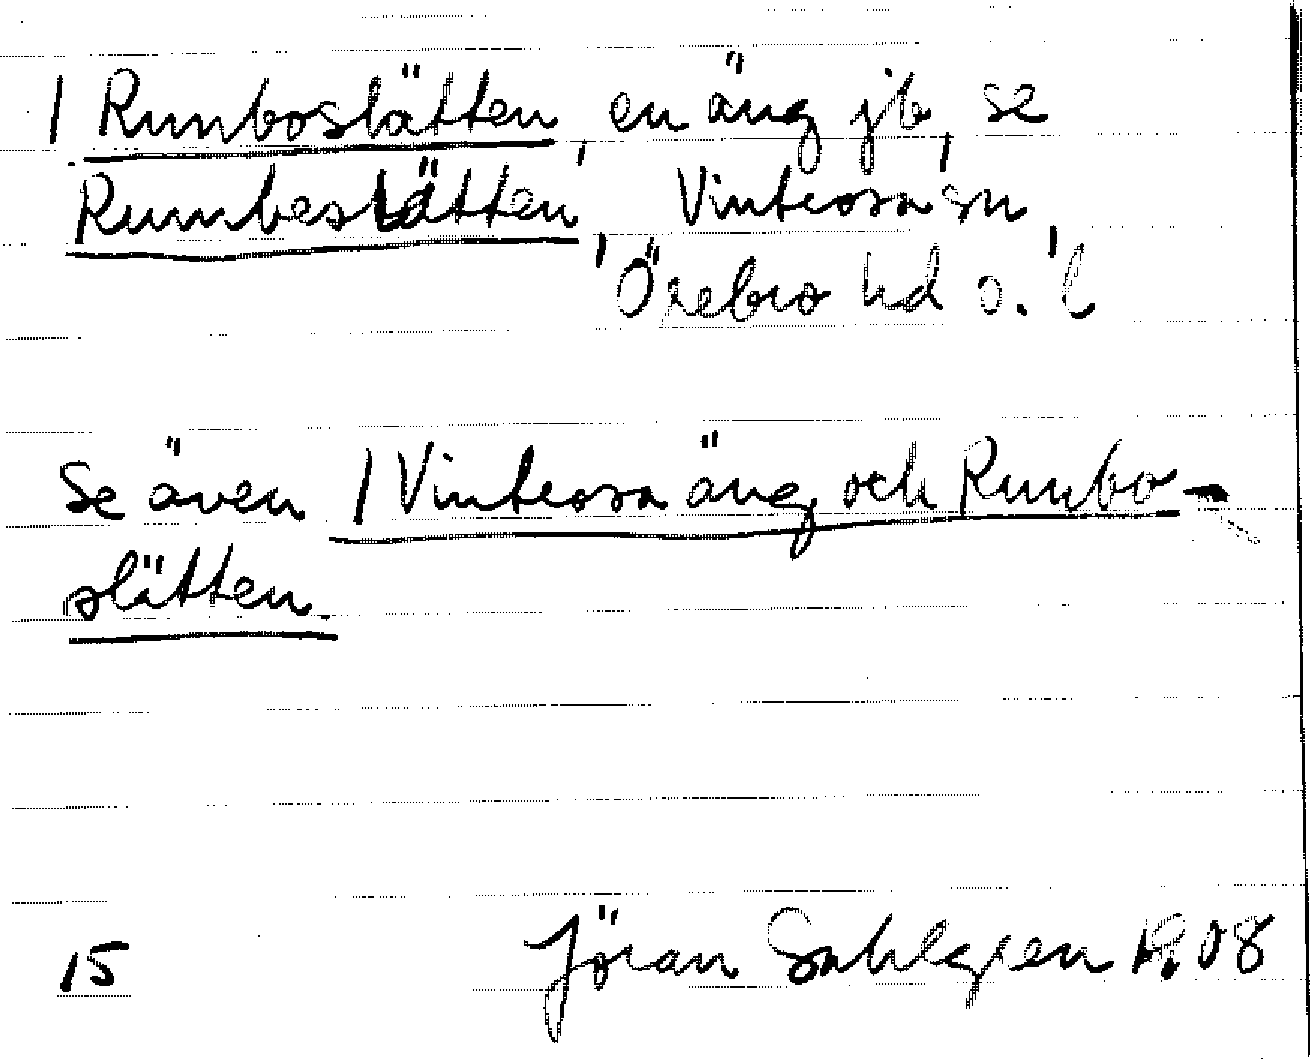 | Runboslätten, en äng jb, se
Rumbeslätten, Vinterosa sn,
Örebro hd o. l
Se även | Vinterosa äng och Runbo-
slätten.
15 Jöran Sahlgren 1908